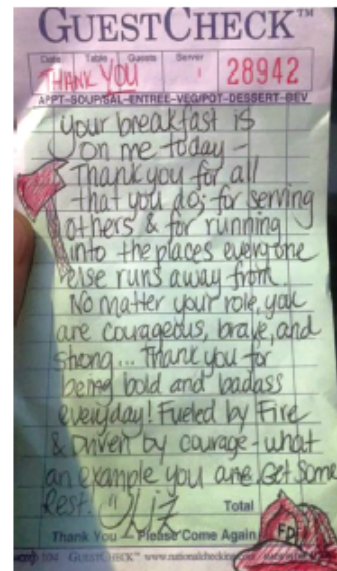 GUESTCHECK™
Date Table Guests Server
THANK YOU 28942
APPT-SOUP/SAL-ENTREE-VEG/POT-DESSERT-BEV
Your breakfast is
on me today -
Thank you for all
that you do; for serving
others & for running
into the places everyone
else runs away from.
No matter your role, you
are courageous, brave, and
strong... Thank you for
being bold and badass
everyday! Fueled by Fire
& Driven by courage - what
an example you are. Get Some
Rest. Liz
Total
FD
Thank You — Please Come Again
GUESTCHECK™